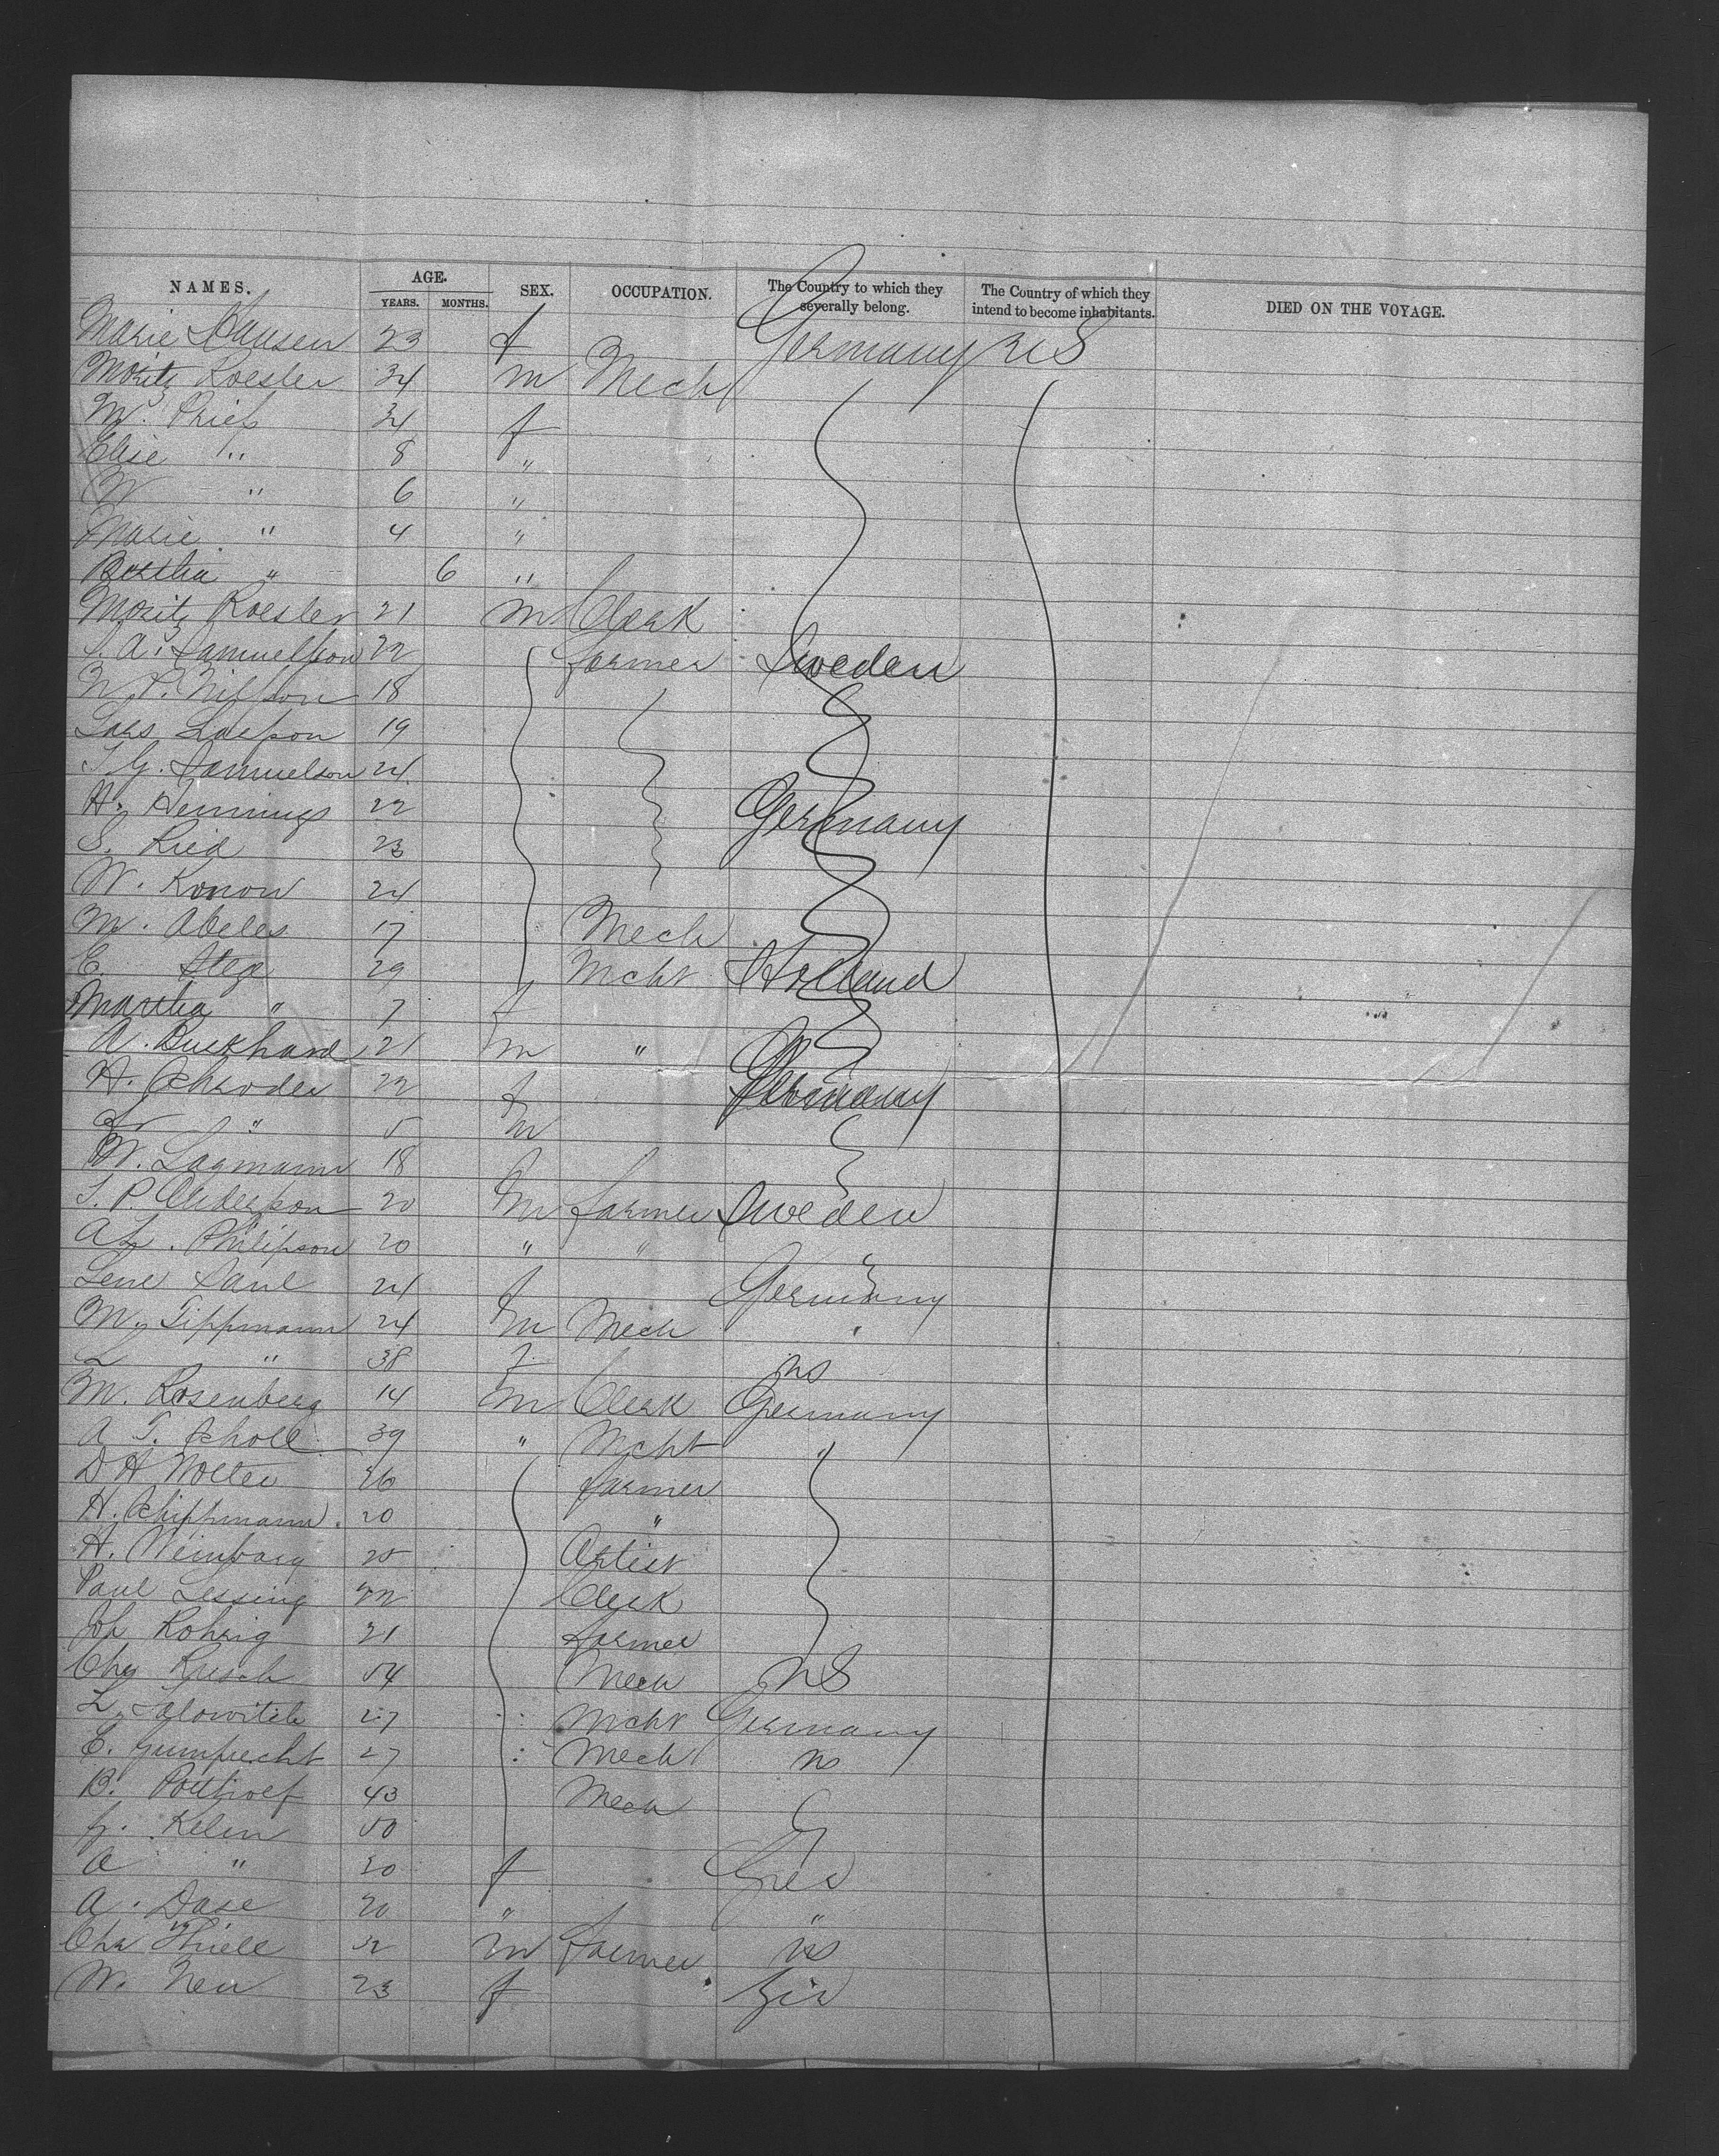 NAMES. AGE. YEARS. MONTHS. SEX. OCCUPATION. The Country to which they severally belong. The Country of which they intend to become inhabitants. DIED ON THE VOYAGE.
Marie Hansen 23 f Germany US
Moritz Roesler 34 m Mech
M. Priess 34 f
Elise " 8 "
W " 6 "
Marie " 4 "
Bertha " 6 "
Moritz Roesler 21 m Clerk
S. A. Samuelsson 22 farmer Sweden
N. P. Nilsson 18
Lars Larsson 19
T. G. Samuelson 24
H. Hennings 22 Germany
S. Ried 23
W. Konow 24
M. Abeles 17 Mech
C. Steg 29 Mcht Holland
Martha " 7 f
A. Burkhard 21 m " Germany
H. Schroder 22 f
Fr " 5 m
W. Lagmann 18
T. P. Anderson 20 m farmer Sweden
A L. Philipson 20 " "
Lene Paul 24 f Germany
M. Tippmann 24 m Mech "
L " 38 f US
M. Rosenberg 14 m Clerk Germany
A T. Scholl 39 " Mcht "
D H Wolter 26 farmer
H. Schippmann 20 "
H. Weinbarg 25 Artist
Paul Lessing 22 Clerk
Joh Rohrig 21 farmer
Chs Rusch 54 Mech US
L. Salowitch 27 Mcht Germany
C. Gumprecht 27 Mech US
B. 43 Mech G
G. Kelm 50
A " 30 f Ger
A. Dase 20 " "
Chs Thiele 32 m farmer US
W. Neu 23 f Ger